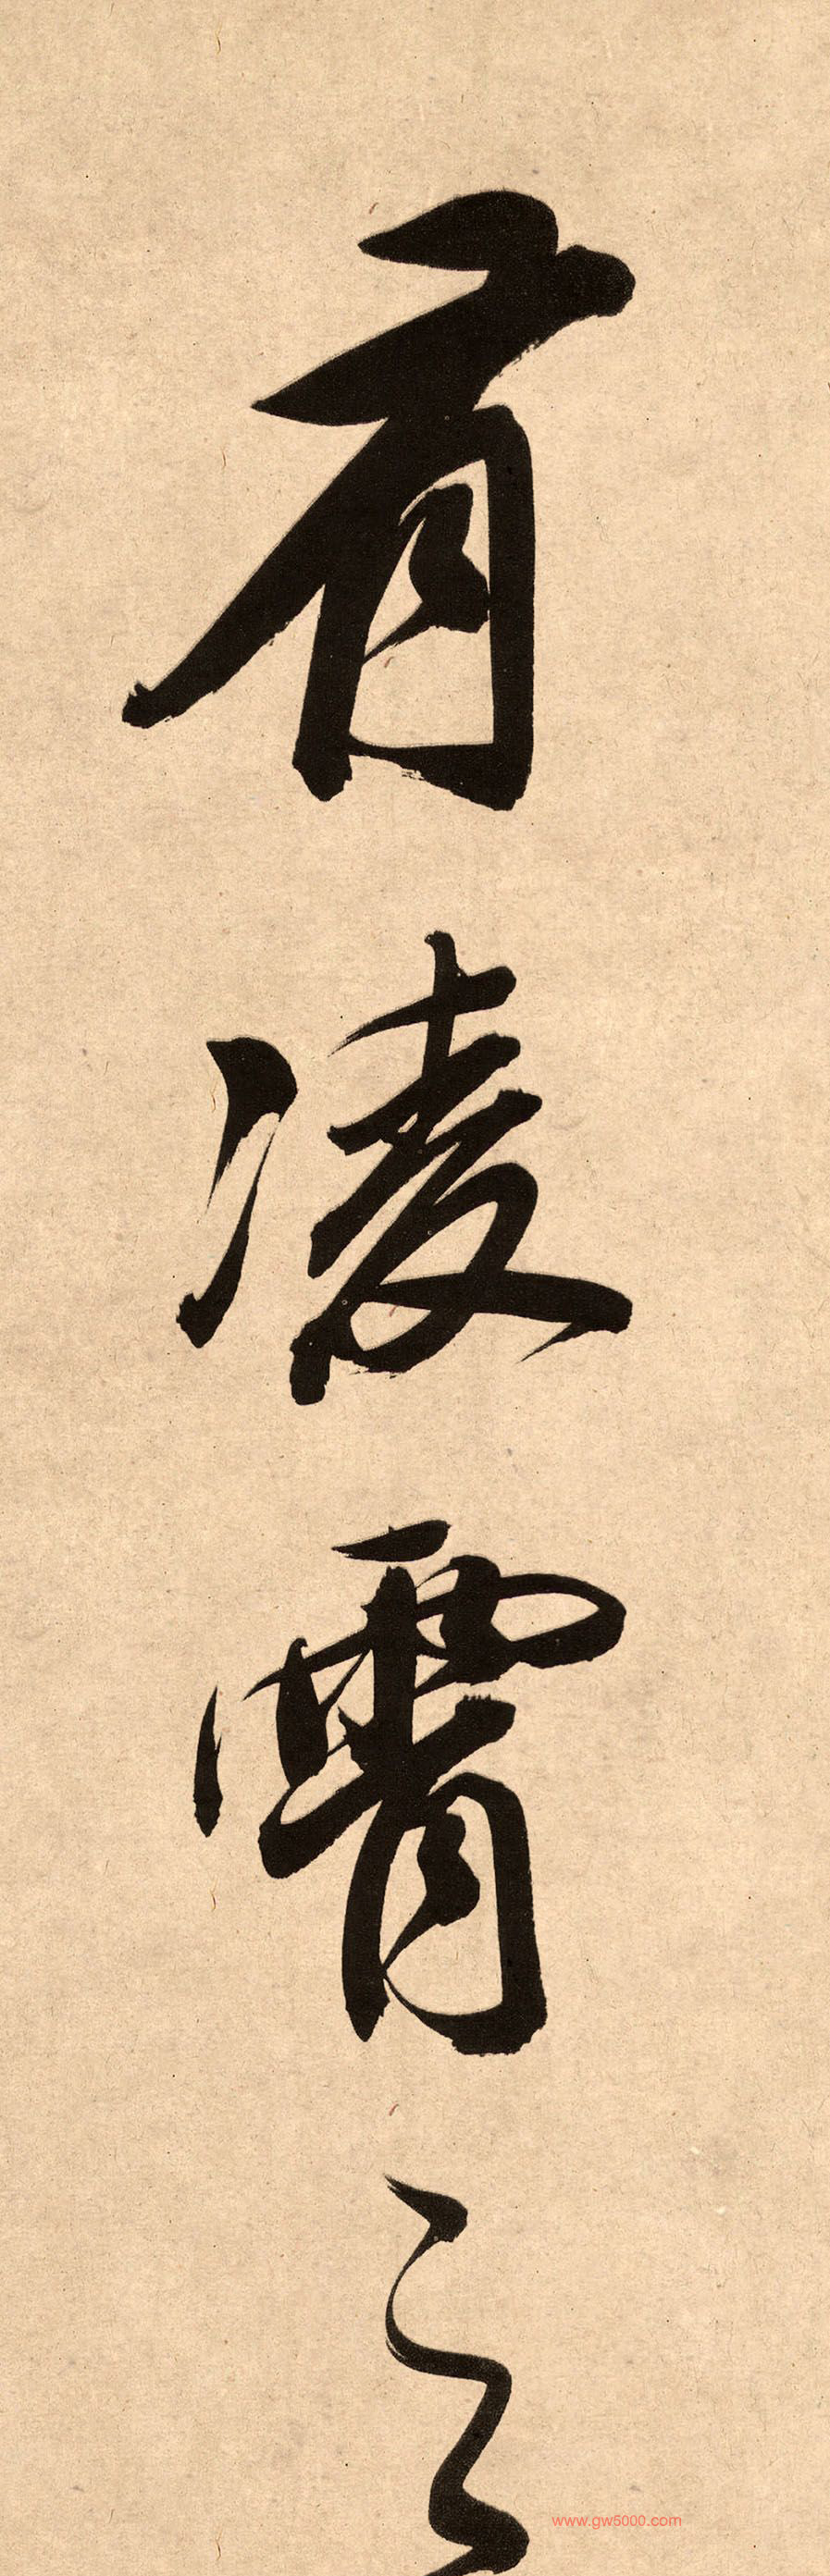 有凌霄之
www.gw5000.com